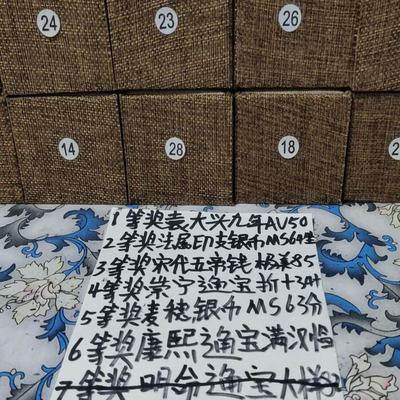 24 23 26
14 28 18 2
1等奖袁大头九年AU50
2等奖法属印支银币MS64
3等奖宋代五帝钱 极美85
4等奖崇宁通宝折十3A+
5等奖麦穗银币MS63分
6等奖康熙通宝满汉
7等奖明命通宝大样